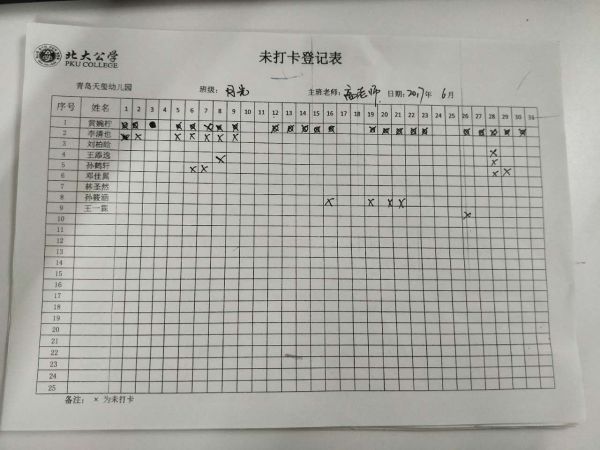 北大公学
PKU COLLEGE
未打卡登记表
青岛天玺幼儿园 班级：月光 主班老师：高老师 日期：2017年 6月
序号 姓名 1 2 3 4 5 6 7 8 9 10 11 12 13 14 15 16 17 18 19 20 21 22 23 24 25 26 27 28 29 30 31
1 黄婉柠 x x ● x x x x x x x x x x x x x x x x x x x x
2 李清也 x x x x x x x
3 刘柏晗
4 王添逸 x x
5 孙鹤轩 x x x
6 邓佳凰 x x
7 林圣然
8 孙筱涵 x x x x
9 王一霖 x
10
11
12
13
14
15
16
17
18
19
20
21
22
23
24
25
备注： × 为未打卡